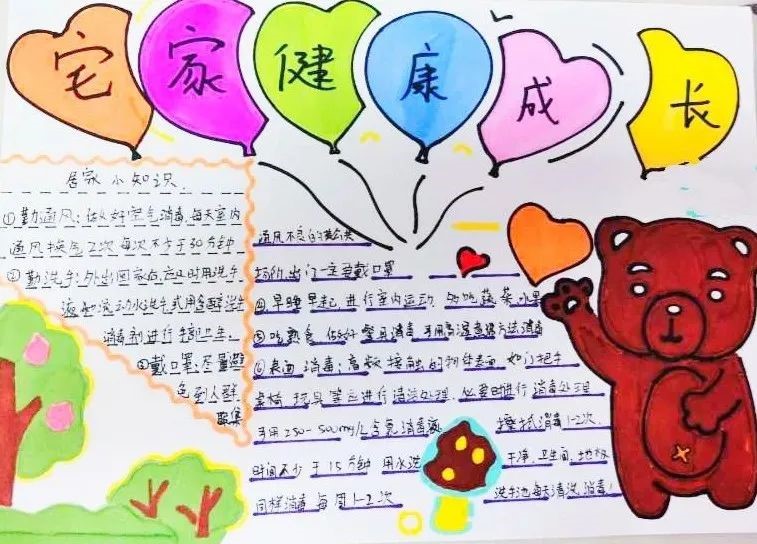 宅家健康成长
居家小知识
①勤通风:做好空气消毒,每天室内
通风换气2次每次不少于30分钟
②勤洗手:外出回家后应及时用洗手
液和流动水洗手或用含醇洗手
消毒剂进行手部卫生。
③戴口罩:尽量避
免到人群
聚集
通风不良的公共
场所,出门一定要戴口罩
④早睡早起 进行室内运动,多吃蔬菜水果
⑤吃熟食 做好餐具消毒 可用高温蒸煮方法消毒
⑥表面消毒:高频接触的物件表面 如门把手
桌椅 玩具等应进行清洁处理,必要时进行消毒处理
可用250-500mg/L含氯消毒液 擦拭消毒1-2次,
时间不少于15分钟 用水洗 干净,卫生间、地板
同样消毒每周1-2次 洗手池每天清洗,消毒!